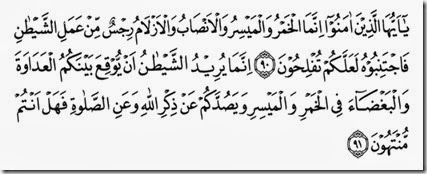 يٰٓاَيُّهَا الَّذِيْنَ اٰمَنُوْٓا اِنَّمَا الْخَمْرُ وَالْمَيْسِرُ وَالْاَنْصَابُ وَالْاَزْلَامُ رِجْسٌ مِّنْ عَمَلِ الشَّيْطٰنِ
فَاجْتَنِبُوْهُ لَعَلَّكُمْ تُفْلِحُوْنَ ﴿٩٠﴾ اِنَّمَا يُرِيْدُ الشَّيْطٰنُ اَنْ يُّوْقِعَ بَيْنَكُمُ الْعَدَاوَةَ
وَالْبَغْضَاۤءَ فِى الْخَمْرِ وَالْمَيْسِرِ وَيَصُدَّكُمْ عَنْ ذِكْرِ اللّٰهِ وَعَنِ الصَّلٰوةِ فَهَلْ اَنْتُمْ
مُّنْتَهُوْنَ ﴿٩١﴾